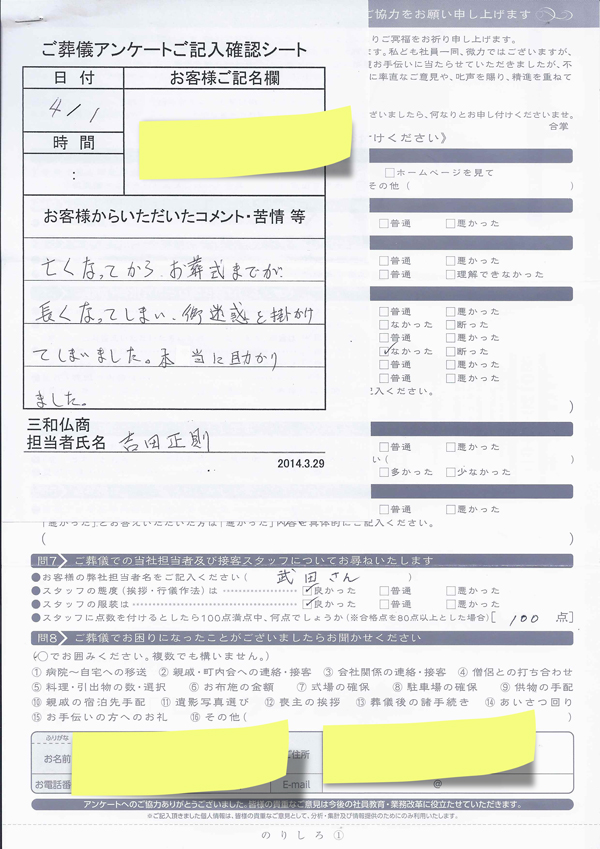 ご協力をお願い申し上げます
ご葬儀アンケートご記入確認シート
日 付
お客様ご記名欄
4/1
時 間
:
お客様からいただいたコメント・苦情 等
亡くなってから、お葬式までが
長くなってしまい、御迷惑を掛かけ
てしまいました。本当に助かり
ました。
三和仏商
担当者氏名 吉田正則
2014.3.29
りご冥福をお祈り申し上げます。
ます。私ども社員一同、微力ではございますが、
お手伝いに当たらせていただきましたが、不
に率直なご意見や、叱声を賜り、精進を重ねて
ざいましたら、何なりとお申し付けくださいませ。
合掌
けください》
□ホームページを見て
その他( )
□普通 □悪かった
□普通 □悪かった
□普通 □理解できなかった
□普通 □悪かった
□なかった □断った
□普通 □悪かった
☑なかった □断った
□普通 □悪かった
□普通 □悪かった
記入ください。
)
□普通 □悪かった
い( )
□多かった □少なかった
□普通 □悪かった
「悪かった」とお答えいただいた方は「悪かった」内容を具体的にご記入ください。
( )
問7 ご葬儀での当社担当者及び接客スタッフについてお尋ねいたします
●お客様の弊社担当者名をご記入ください( 武田さん )
●スタッフの態度(挨拶・行儀作法)は ☑良かった □普通 □悪かった
●スタッフの服装は ☑良かった □普通 □悪かった
●スタッフに点数を付けるとしたら100点満点中、何点でしょうか(※合格点を80点以上とした場合)[ 100 点]
問8 ご葬儀でお困りになったことがございましたらお聞かせください
(○でお囲みください。複数でも構いません。)
①病院~自宅への移送 ②親戚・町内会への連絡・接客 ③会社関係の連絡・接客 ④僧侶との打ち合わせ
⑤料理・引出物の数・選択 ⑥お布施の金額 ⑦式場の確保 ⑧駐車場の確保 ⑨供物の手配
⑩親戚の宿泊先手配 ⑪遺影写真選び ⑫喪主の挨拶 ⑬葬儀後の諸手続き ⑭あいさつ回り
⑮お手伝いの方へのお礼 ⑯その他( )
ふりがな
お名前
ご住所
お電話番
E-mail @
アンケートへのご協力ありがとうございました。皆様の貴重なご意見は今後の社員教育・業務改革に役立たせていただきます。
※ご記入頂きました個人情報は、皆様の貴重なご意見として、分析・集計及び情報提供のためにのみ利用いたします。
のりしろ①